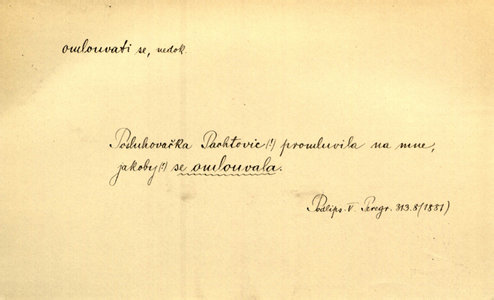 omlouvati se, nedok.
Posluhovačka Pachtovic(!) promluvila na mne,
jakoby(!) se omlouvala.
Podlips. V. Peregr. 313.8 (1881)